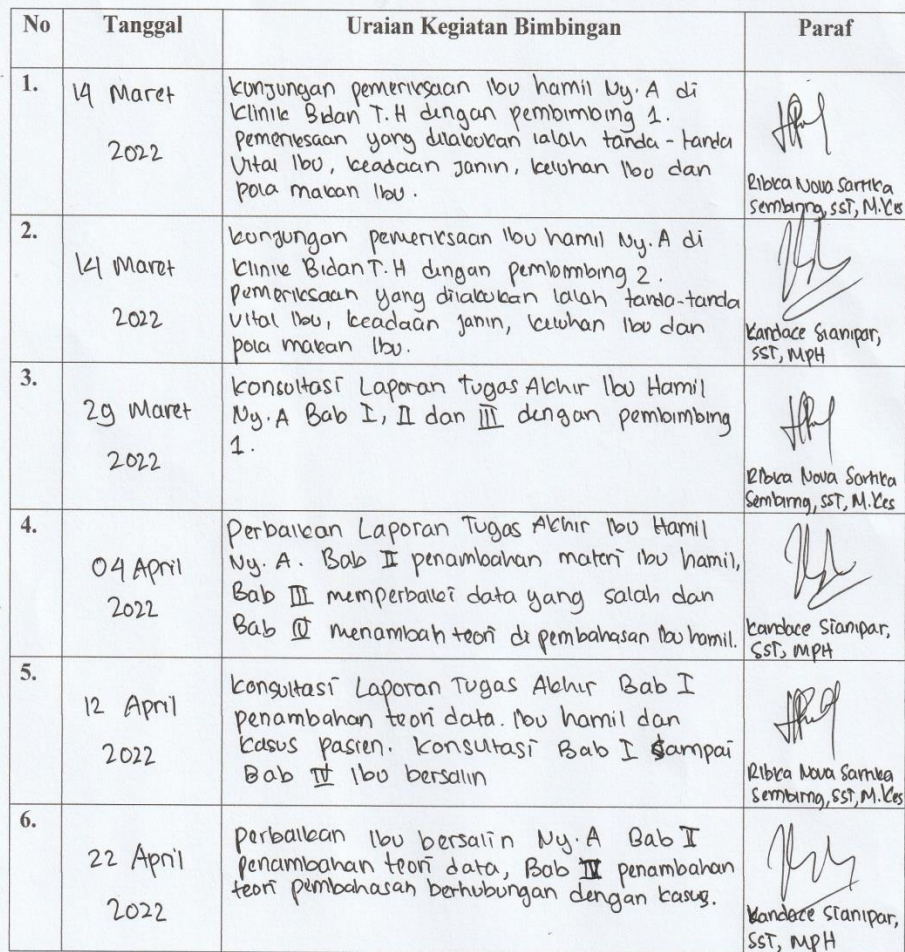 No Tanggal Uraian Kegiatan Bimbingan Paraf
1. 14 Maret 2022
kunjungan pemeriksaan Ibu hamil Ny. A di
Klinik Bidan T.H dengan pembimbing 1.
pemeriksaan yang dilakukan ialah tanda-tanda
Vital Ibu, keadaan janin, keluhan Ibu dan
pola makan Ibu.
Ribka Nova Sartika
Sembiring, SST, M.Kes
2. 14 Maret 2022
kunjungan pemeriksaan Ibu hamil Ny. A di
Klinik Bidan T.H dengan pembimbing 2.
pemeriksaan yang dilakukan ialah tanda-tanda
vital Ibu, keadaan janin, keluhan Ibu dan
pola makan Ibu.
Kandace Sianipar,
SST, MPH
3. 29 Maret 2022
Konsultasi Laporan Tugas Akhir Ibu Hamil
Ny. A Bab I, II dan III dengan pembimbing
1.
Ribka Nova Sartika
Sembiring, SST, M.Kes
4. 04 April 2022
Perbaikan Laporan Tugas Akhir Ibu Hamil
Ny. A. Bab II penambahan materi Ibu hamil,
Bab III memperbaiki data yang salah dan
Bab IV menambah teori di pembahasan Ibu hamil.
Kandace Sianipar,
SST, MPH
5. 12 April 2022
konsultasi Laporan Tugas Akhir Bab I
penambahan teori data. Ibu hamil dan
kasus pasien. Konsultasi Bab I sampai
Bab IV Ibu bersalin
Ribka Nova Sartika
Sembiring, SST, M.Kes
6. 22 April 2022
perbaikan Ibu bersalin Ny. A Bab I
penambahan teori data, Bab IV penambahan
teori pembahasan berhubungan dengan kasus.
Kandace Sianipar,
SST, MPH